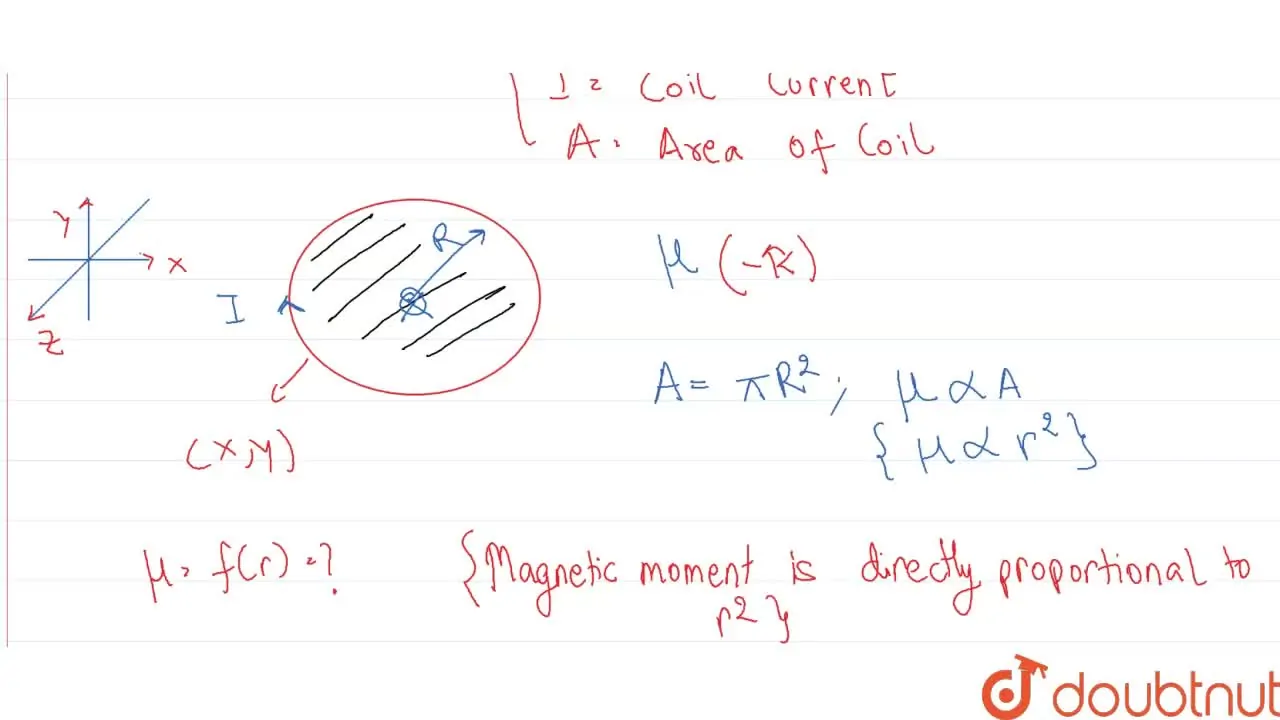 I = Coil Current
A = Area of Coil
Y
X
Z
I
R
(X,Y)
μ (-k̂)
A = πR² ; μ ∝ A
{ μ ∝ r² }
μ = f(r) = ?
{Magnetic moment is directly proportional to
r² }
doubtnut